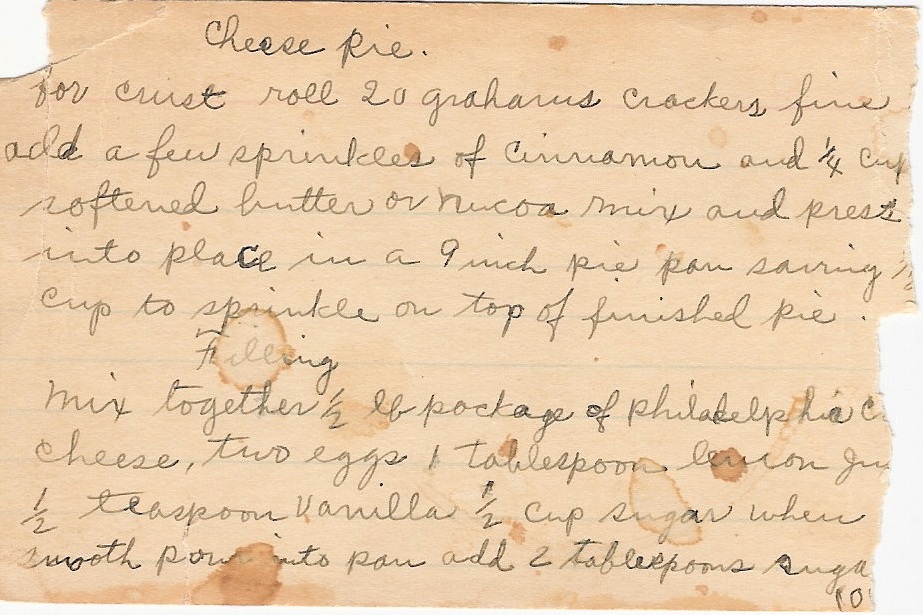 Cheese Pie.
For crust roll 20 grahams crackers fine
add a few sprinkles of cinnamon and 1/4 cup
softened butter or Nucoa mix and press
into place in a 9 inch pie pan saving
cup to sprinkle on top of finished pie.
Filling
Mix together 1/2 lb package of Philadelphia
cheese, two eggs 1 tablespoon lemon
1/2 teaspoon Vanilla 1/2 cup sugar when
smooth pour into pan add 2 tablespoons